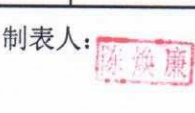 制表人：陈焕廉